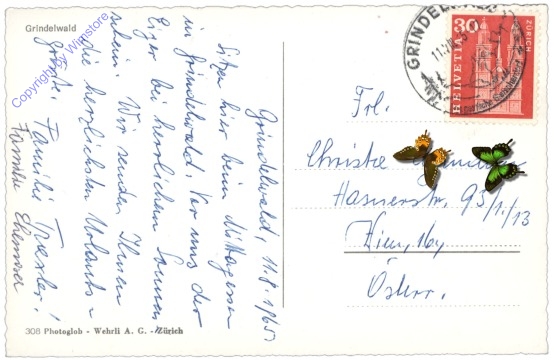 Grindelwald
Copyright by Wimstore
Grindelwald, 11.8.1965
Sitzen hier beim Mittagessen
in Grindelwald. Vor uns der
Eiger bei herrlichem Sonnen-
schein. Wir senden Ihnen
die herrlichsten Urlaubs-
grüße. Familie
Familie
GRINDELWALD
HELVETIA
30
ZÜRICH
Frl.
Christie
Hasnerstr. 93/1/13
Wien, 16
Österr.
308 Photoglob - Wehrli A. G. - Zürich